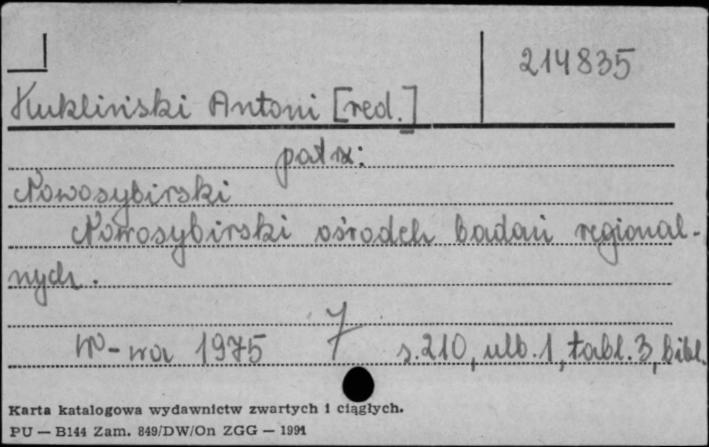 214835
Kukliński Antoni [red.]
patrz:
Nowosybirski
Nowosybirski ośrodek badań regional-
nych.
W-wa 1975 7 s.210, ulb.1, tabl.3, bibl.
Karta katalogowa wydawnictw zwartych i ciągłych.
PU — B144 Zam. 849/DW/On ZGG — 1991